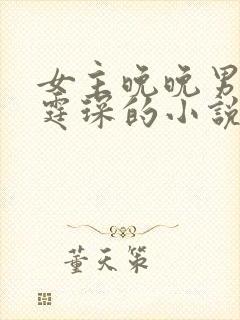 女主晚晚男
霆琛的小説
董天策